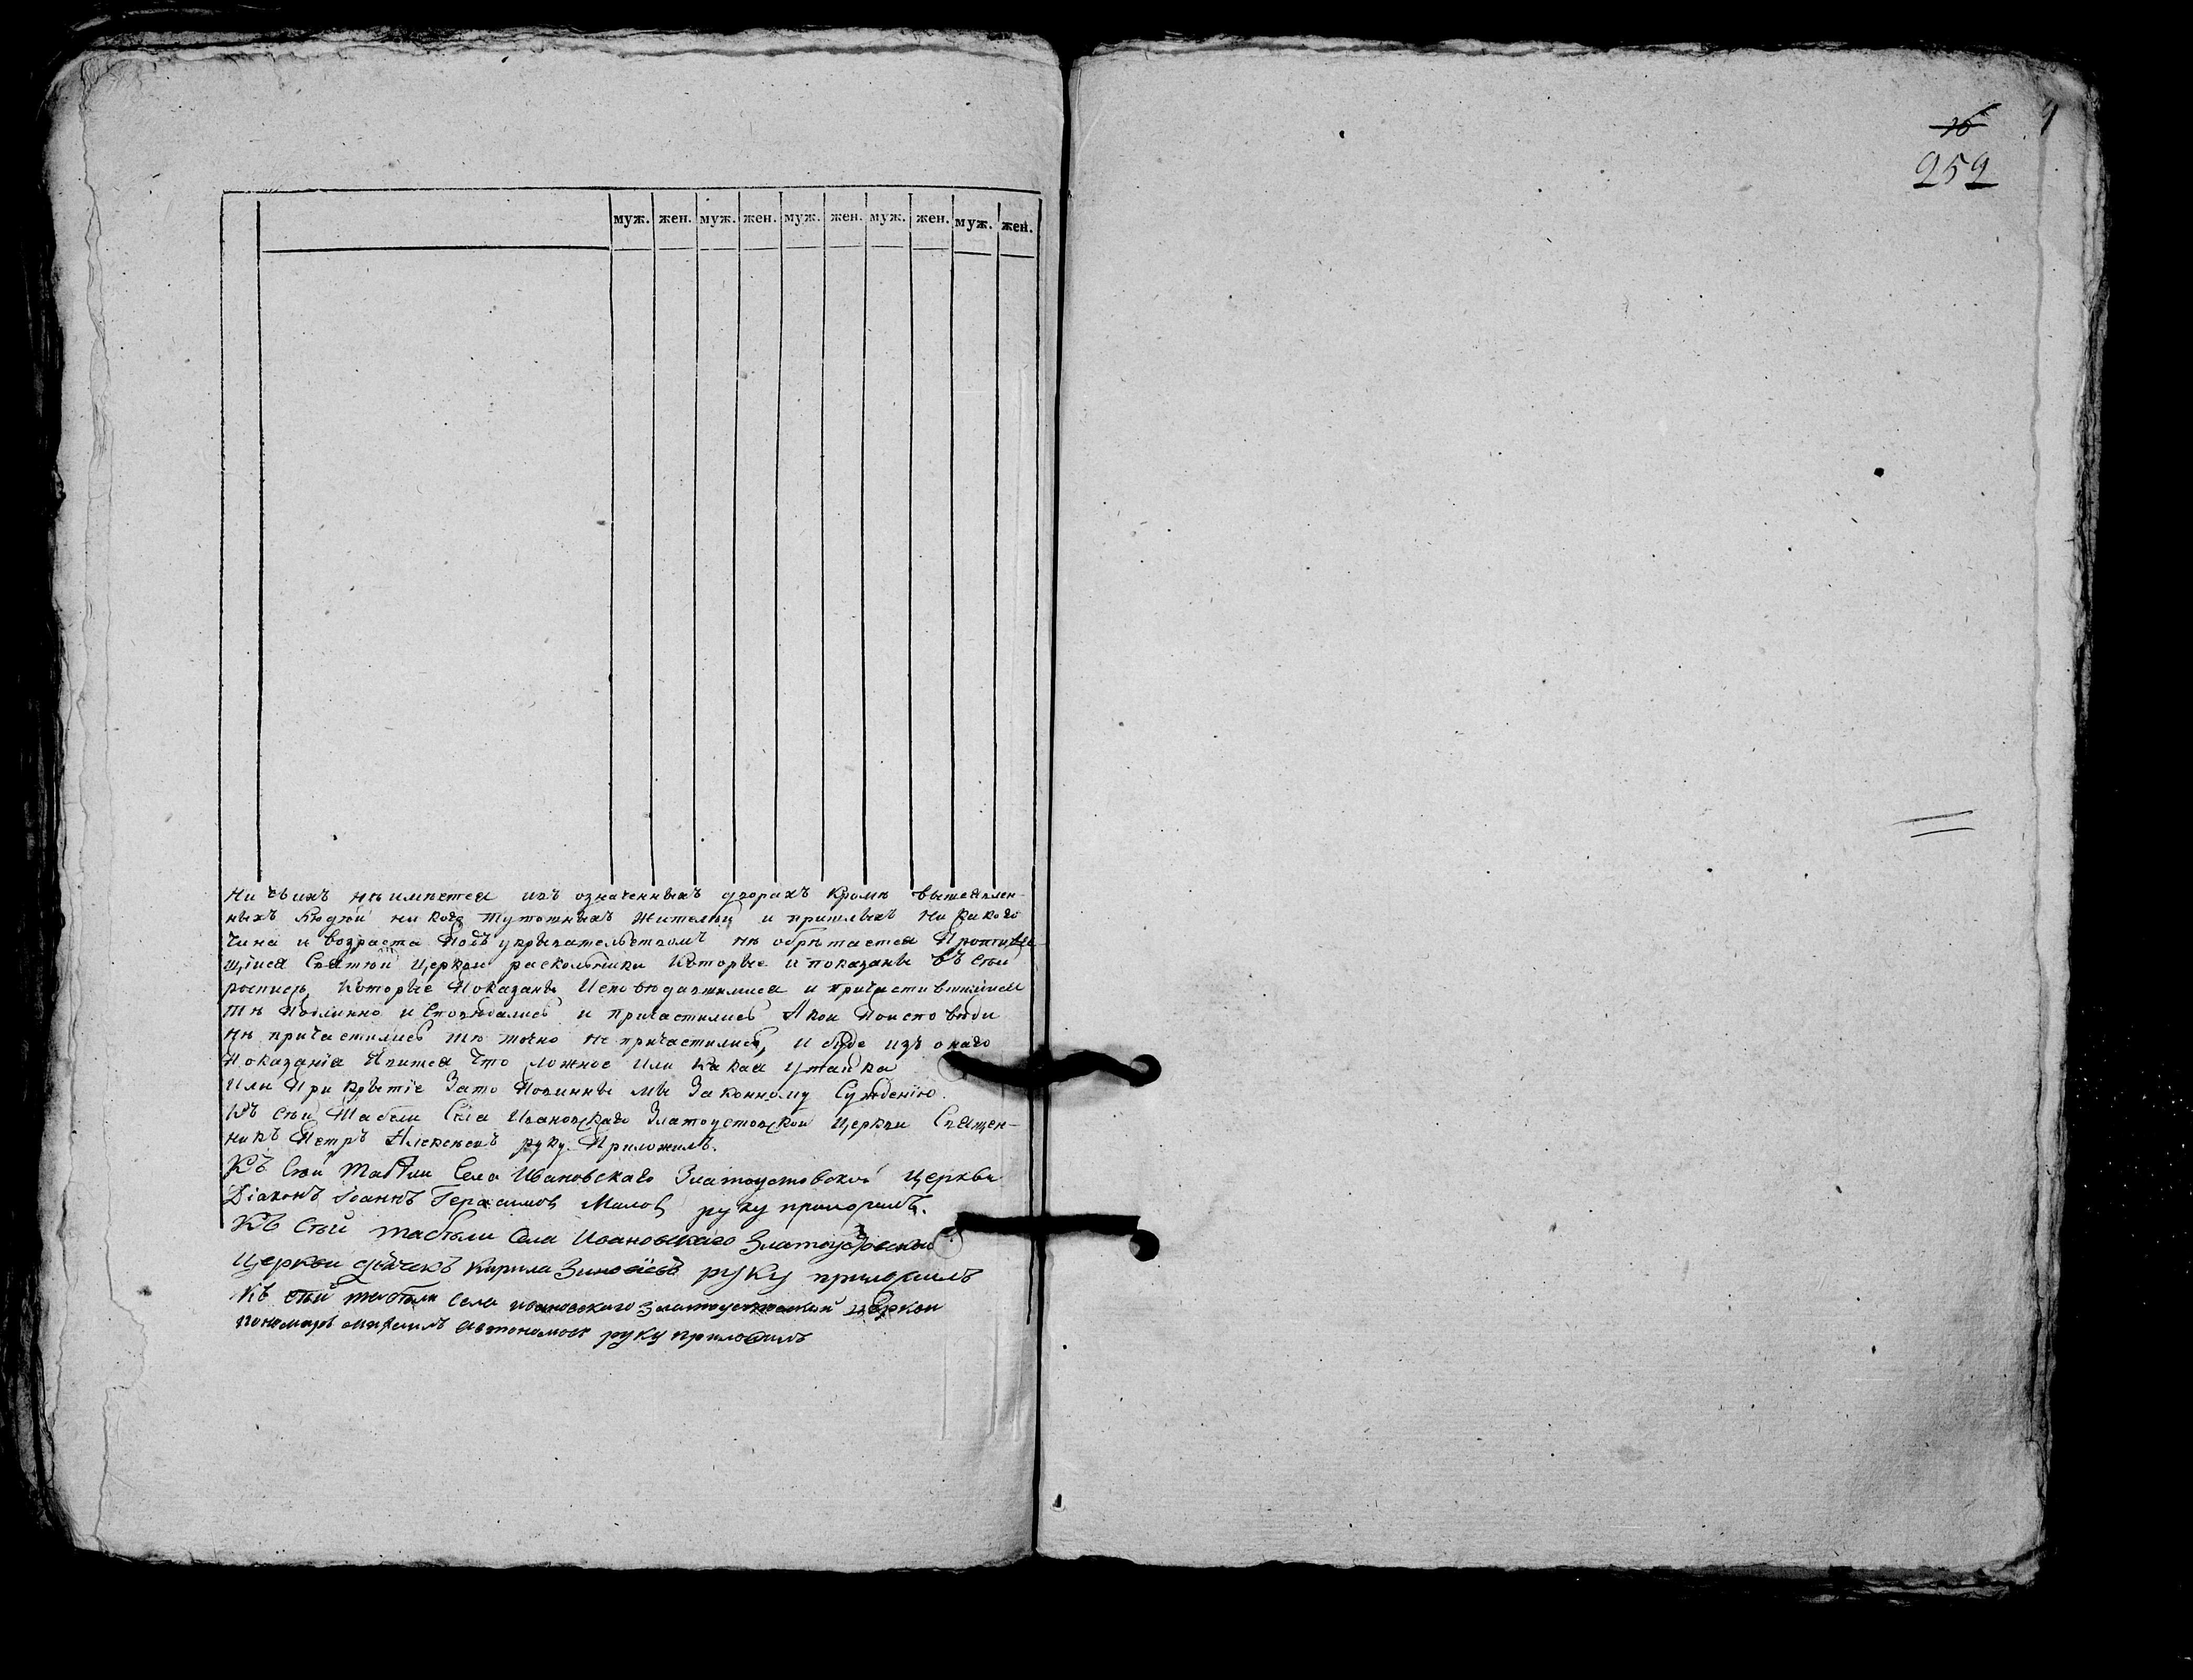 16
252
муж. жен. муж. жен. муж. жен. муж. жен. муж. жен.
ни чьихъ неимѣетея изъ означенныхъ дворахъ кромѣ вышеявлен-
ныхъ людей ни кого тутошныхъ жителей и пришлыхъ ни какого
чина и возраста подъ укрывательствомъ не обрѣтается
щїися святей церкви раскольники которые и показаны въ сей
росписи, которые показаны исповедавшимися и причастившимися
тѣ подлинно исповедались и причастились а кои по исповѣди
не причастились тѣ точно не причастились, и буде изъ онаго
показанїя явится что ложное или какая утайка
или прикрытїе за то повинны мы законному сужденїю.
Къ сей табели села Ивановскаго Златоустовской церкви Священ-
никъ Петръ Алексеевъ руку приложилъ.
Къ сей табели села Ивановскаго Златоустовской церкви
Дїаконъ Іоаннъ Герасимовъ Малов руку приложилъ.
Къ сей табели села Ивановскаго Златоустовской
церкви дьячекъ Кирила Зиновїевъ руку приложилъ
Къ сей табели села ивановскаго златоустовской церкви
пономарь автономовъ руку приложилъ